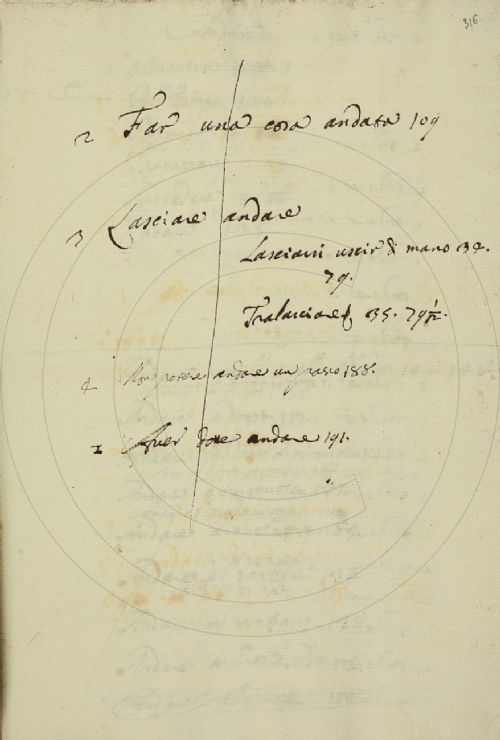 316
2 Far una cosa andata 109
3 Lasciare andare
Lasciarsi uscir di mano 34.
79.
Tralasciare 35. 79½.
4 Non potere andare un passo 188.
1 Aver dove andare 191.